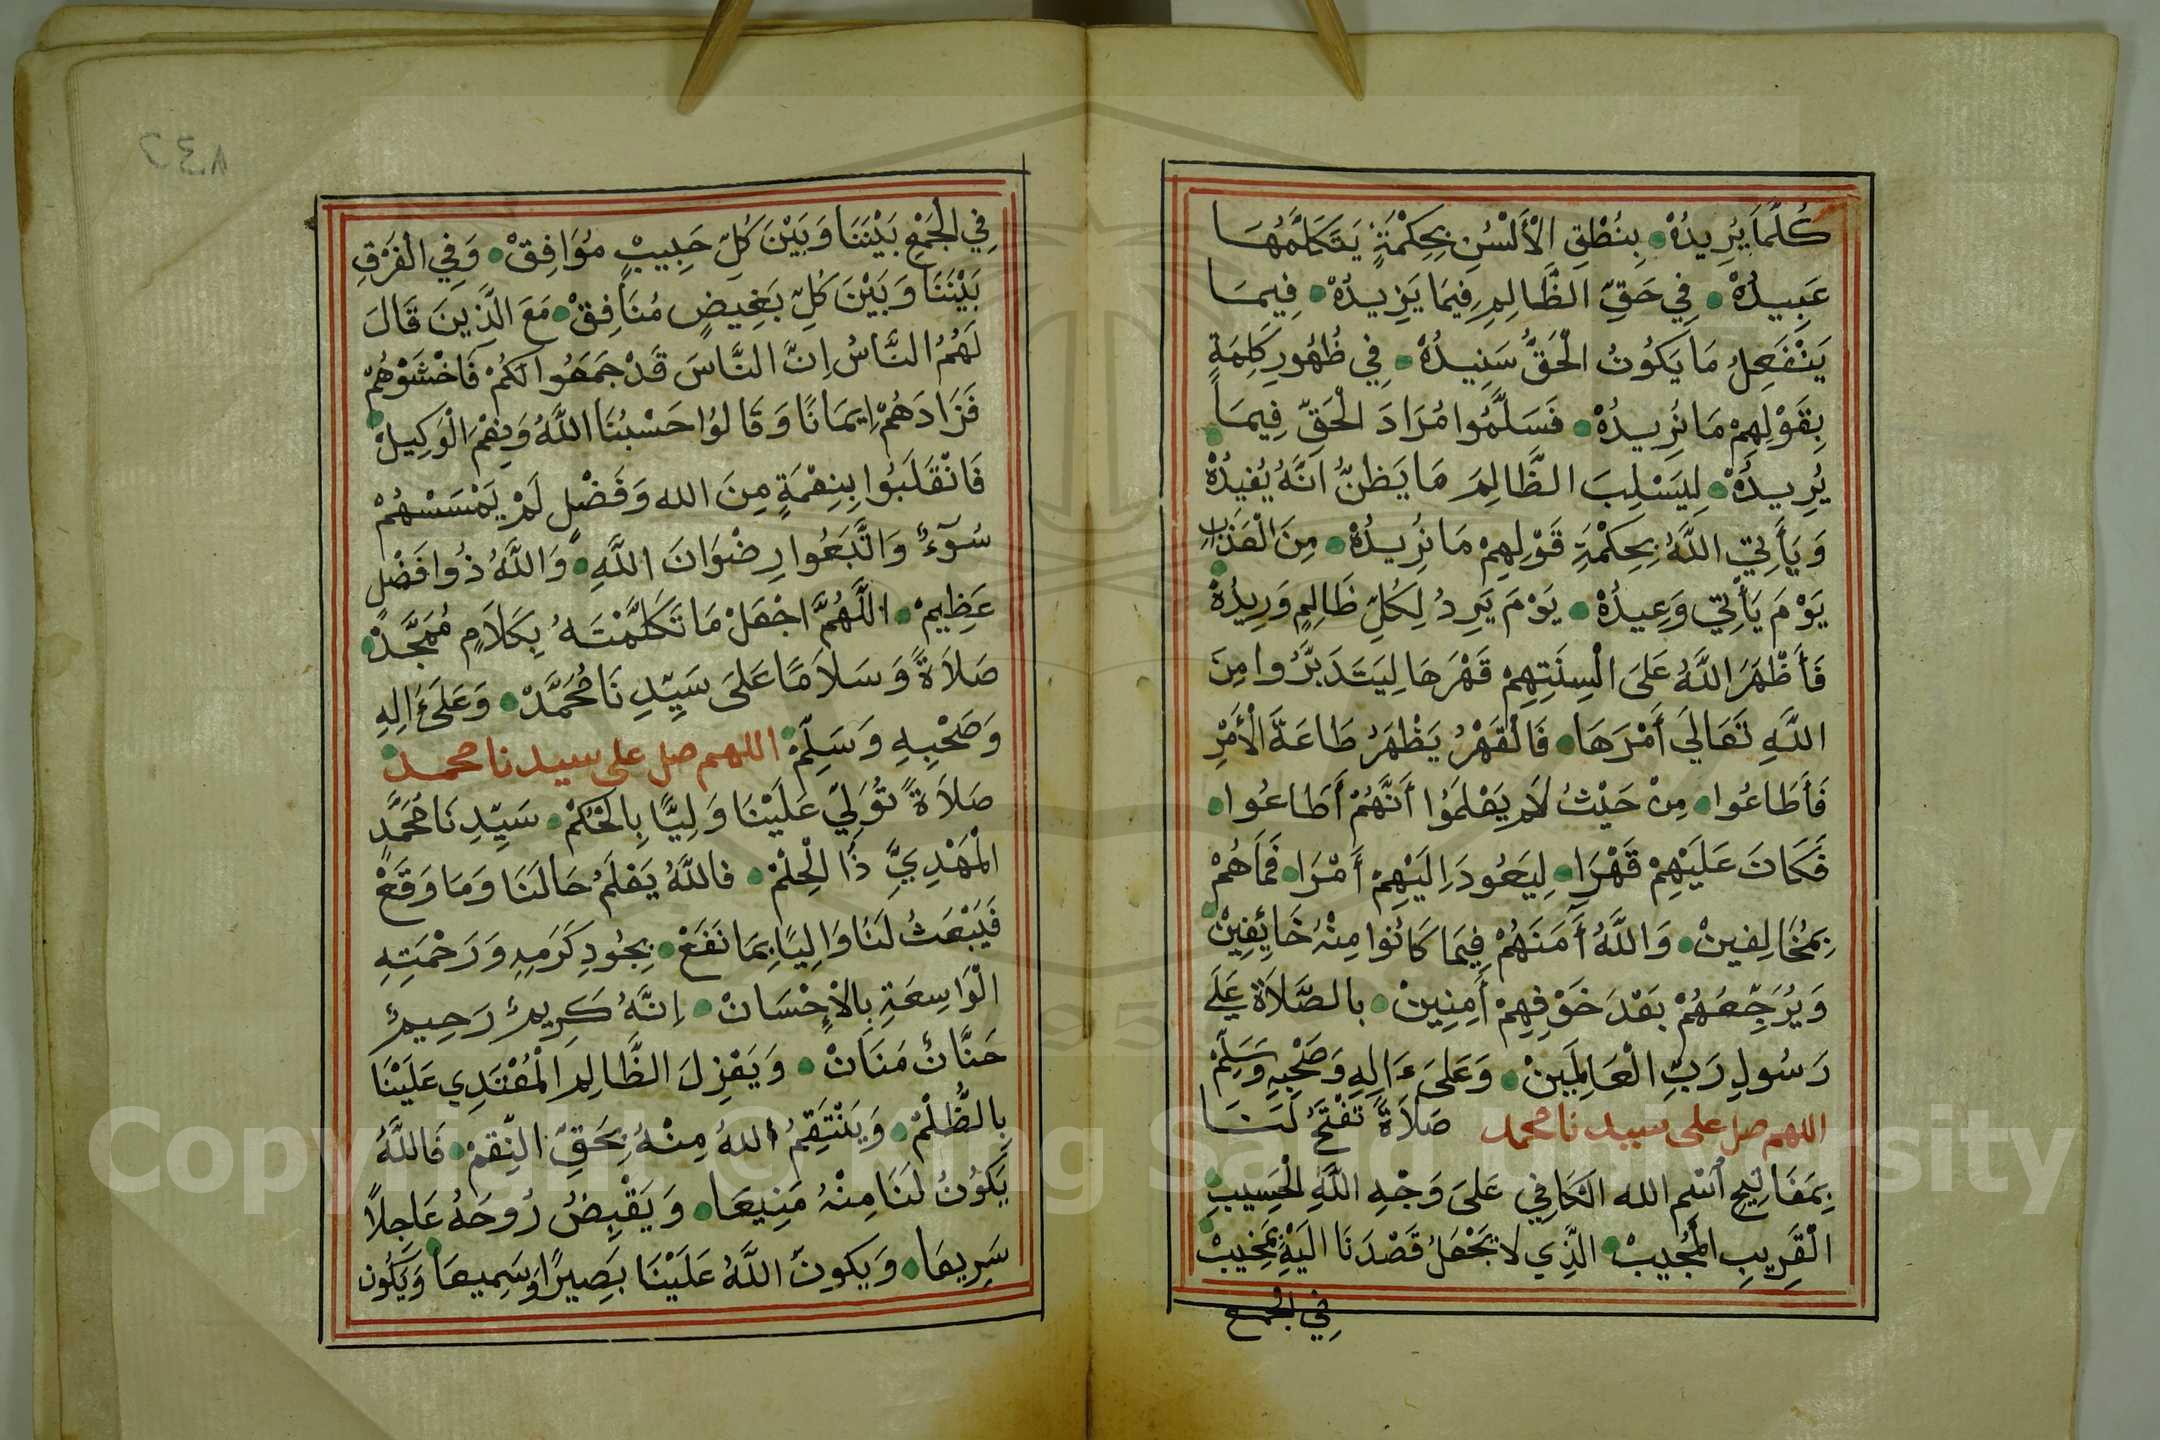 كُلَّمَا يُرِيدُهْ بِنُطْقِ الْأَلْسُنِ بِحِكْمَةٍ يَتَكَلَّمُهَا
عَبِيدُهْ فِي حَقِّ الظَّالِمِ فِيمَا يَزِيدُهْ فِيمَا
يَنْفَعِلُ مَا يَكُونُ الْحَقُّ سَنِيدُهْ فِي ظُهُورِ كَلِمَةٍ
بِقَوْلِهِمْ مَا نُرِيدُهْ فَسَلَّمُوا مُرَادَ الْحَقِّ فِيمَا
يُرِيدُهْ لِيَسْلِبَ الظَّالِمَ مَا يَظُنُّ اَنَّهُ يُفِيدُهْ
وَيَأْتِي اللَّهُ بِحِكْمَةِ قَوْلِهِمْ مَا نُرِيدُهْ مِنَ الْعَذَابِ
يَوْمَ يَأْتِي وَعِيدُهْ يَوْمَ يَرِدُ لِكُلِّ ظَالِمٍ وَرِيدُهْ
فَأَظْهَرَ اللَّهُ عَلَى اَلْسِنَتِهِمْ قَهْرَهَا لِيَتَدَبَّرُوا مِنَ
اللَّهِ تَعَالَى أَمْرَهَا فَالْقَهْرُ يَظْهَرُ طَاعَةَ الْأَمْرِ
فَأَطَاعُوا مِنْ حَيْثُ لَمْ يَعْلَمُوا أَنَّهُمْ أَطَاعُوا
فَكَانَ عَلَيْهِمْ قَهْرَا لِيَعُودَ اِلَيْهِمْ أَمْرَا فَمَا هُمْ
بِمُخَالِفِينْ وَاللَّهُ أَمَنَهُمْ فِيمَا كَانُوا مِنْهُ خَائِفِينْ
وَيُرَجِّعُهُمْ بَعْدَ خَوْفِهِمْ أَمِنِينْ بِالصَّلَاةِ عَلَى
رَسُولِ رَبِّ الْعَالَمِينْ وَعَلَى ءَالِهِ وَصَحْبِهِ وَسَلِّمْ
اللهم صل على سيدنا محمد صَلَاةً تَفْتَحُ لَنَا
بِمَفَاتِيحِ اسْمِ الله الْكَافِي عَلَى وَجْهِ اللَّهِ الْحَسِيبِ
الْقَرِيبِ الْمُجِيبْ الَّذِي لَا يَجْعَلُ قَصْدَنَا اِلَيْهِ بِمَخِيبْ
فِي الجمع
فِي الْجَمْعِ بَيْنَنَا وَبَيْنَ كُلِّ حَبِيبٍ مُوَافِقْ وَفِي الْفَرْقِ
بَيْنَنَا وَبَيْنَ كُلِّ بَغِيضٍ مُنَافِقْ مَعَ الَّذِينَ قَالَ
لَهُمُ النَّاسُ اِنَّ النَّاسَ قَدْ جَمَعُوا لَكُمْ فَاخْشَوْهُمْ
فَزَادَهُمْ اِيمَانًا وَقَالُوا حَسْبُنَا اللَّهُ وَنِعْمَ الْوَكِيلُ
فَانْقَلَبُوا بِنِعْمَةٍ مِنَ الله وَفَضْلٍ لَمْ يَمْسَسْهُمْ
سُوٓءٌ وَاتَّبَعُوا رِضْوَانَ اللَّهِ وَاللَّهُ ذُوا فَضْلٍ
عَظِيمْ اَللَّهُمَّ اجْعَلْ مَا تَكَلَّمْتَهُ بِكَلَامٍ مُمَجَّدْ
صَلَاةً وَسَلَامًا عَلَى سَيِّدِنَا مُحَمَّدْ وَعَلَى ءَالِهِ
وَصَحْبِهِ وَسَلِّمْ اللهم صل على سيدنا محمد
صَلَاةً تُوَلِّي عَلَيْنَا وَلِيًّا بِالْحُكْمْ سَيِّدِنَا مُحَمَّدٍ
الْمَهْدِيِّ ذَا الْحِلْمْ فاللَّهُ يَعْلَمُ حَالَنَا وَمَا وَقَعْ
فَيَبْعَثُ لَنَا وَالِيًا بِمَا نَفَعْ بِجُودِ كَرَمِهِ وَرَحْمَتِهِ
الْوَاسِعَةِ بِالْإِحْسَانْ اِنَّهُ كَرِيمٌ رَحِيمٌ
حَنَّانٌ مَنَانْ وَيَعْزِلَ الظَّالِمَ الْمُعْتَدِي عَلَيْنَا
بِالظُّلْمْ وَيَنْتَقِمُ اللهُ مِنْهُ بِحَقِّ النِّقَمْ فَاللَّهُ
يَكُونُ لَنَا مِنْهُ مَنِيعَا وَيَقْبِضُ رُوحَهُ عَاجِلاً
سَرِيعَا وَيَكُونُ اللَّهُ عَلَيْنَا بَصِيرًا وَسَمِيعَا وَيَكُون